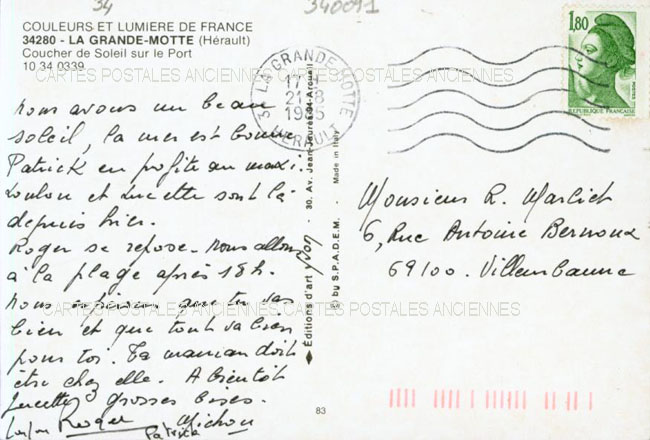 34
340091
COULEURS ET LUMIERE DE FRANCE
34280 - LA GRANDE-MOTTE (Hérault)
Coucher de Soleil sur le Port
10 34 0339
CARTES POSTALES ANCIENNES CARTES POSTALES ANCIENNES
Nous avons un beau
soleil, la mer est bonne
Patrick en profite au maxi.
Loulou et Lucette sont là
depuis hier.
Roger se repose. Nous allons
à la plage après 18h.
Nous espérons que tu vas
bien et que tout va bien
pour toi. Ta maman doit
être chez elle. A bientôt
grosses bises.
Lucette
Loulou Roger Michou
Patrick
LA GRANDE MOTTE
17H
21-8
1985
HERAULT
1,80
POSTES
REPUBLIQUE FRANÇAISE
Editions d'art yvon
30, Av. Jean-Jaurès 94-Arcueil
© by S.P.A.D.E.M. - Made in Italy
Monsieur R. Marlich
6, Rue Antoine Bernoux
69100. Villeurbanne
CARTES POSTALES ANCIENNES CARTES POSTALES ANCIENNES
83